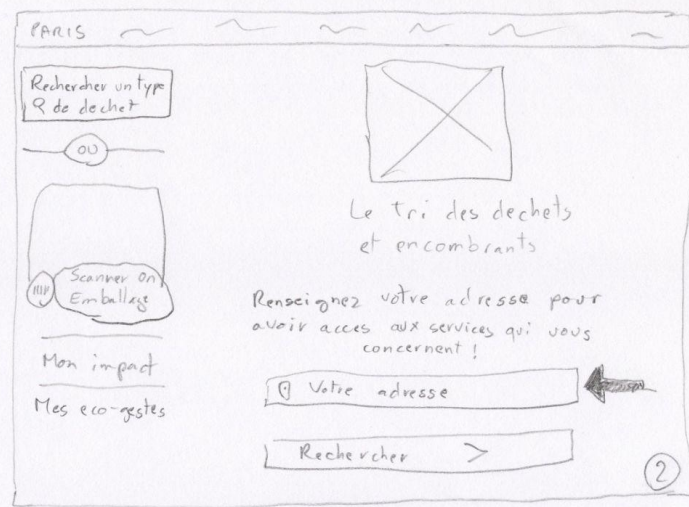 PARIS
Rechercher un type
de dechet
OU
Scanner Un
Emballage
Mon impact
Mes eco-gestes
Le tri des dechets
et encombrants
Renseignez votre adresse pour
avoir acces aux services qui vous
concernent !
Votre adresse
Rechercher >
2